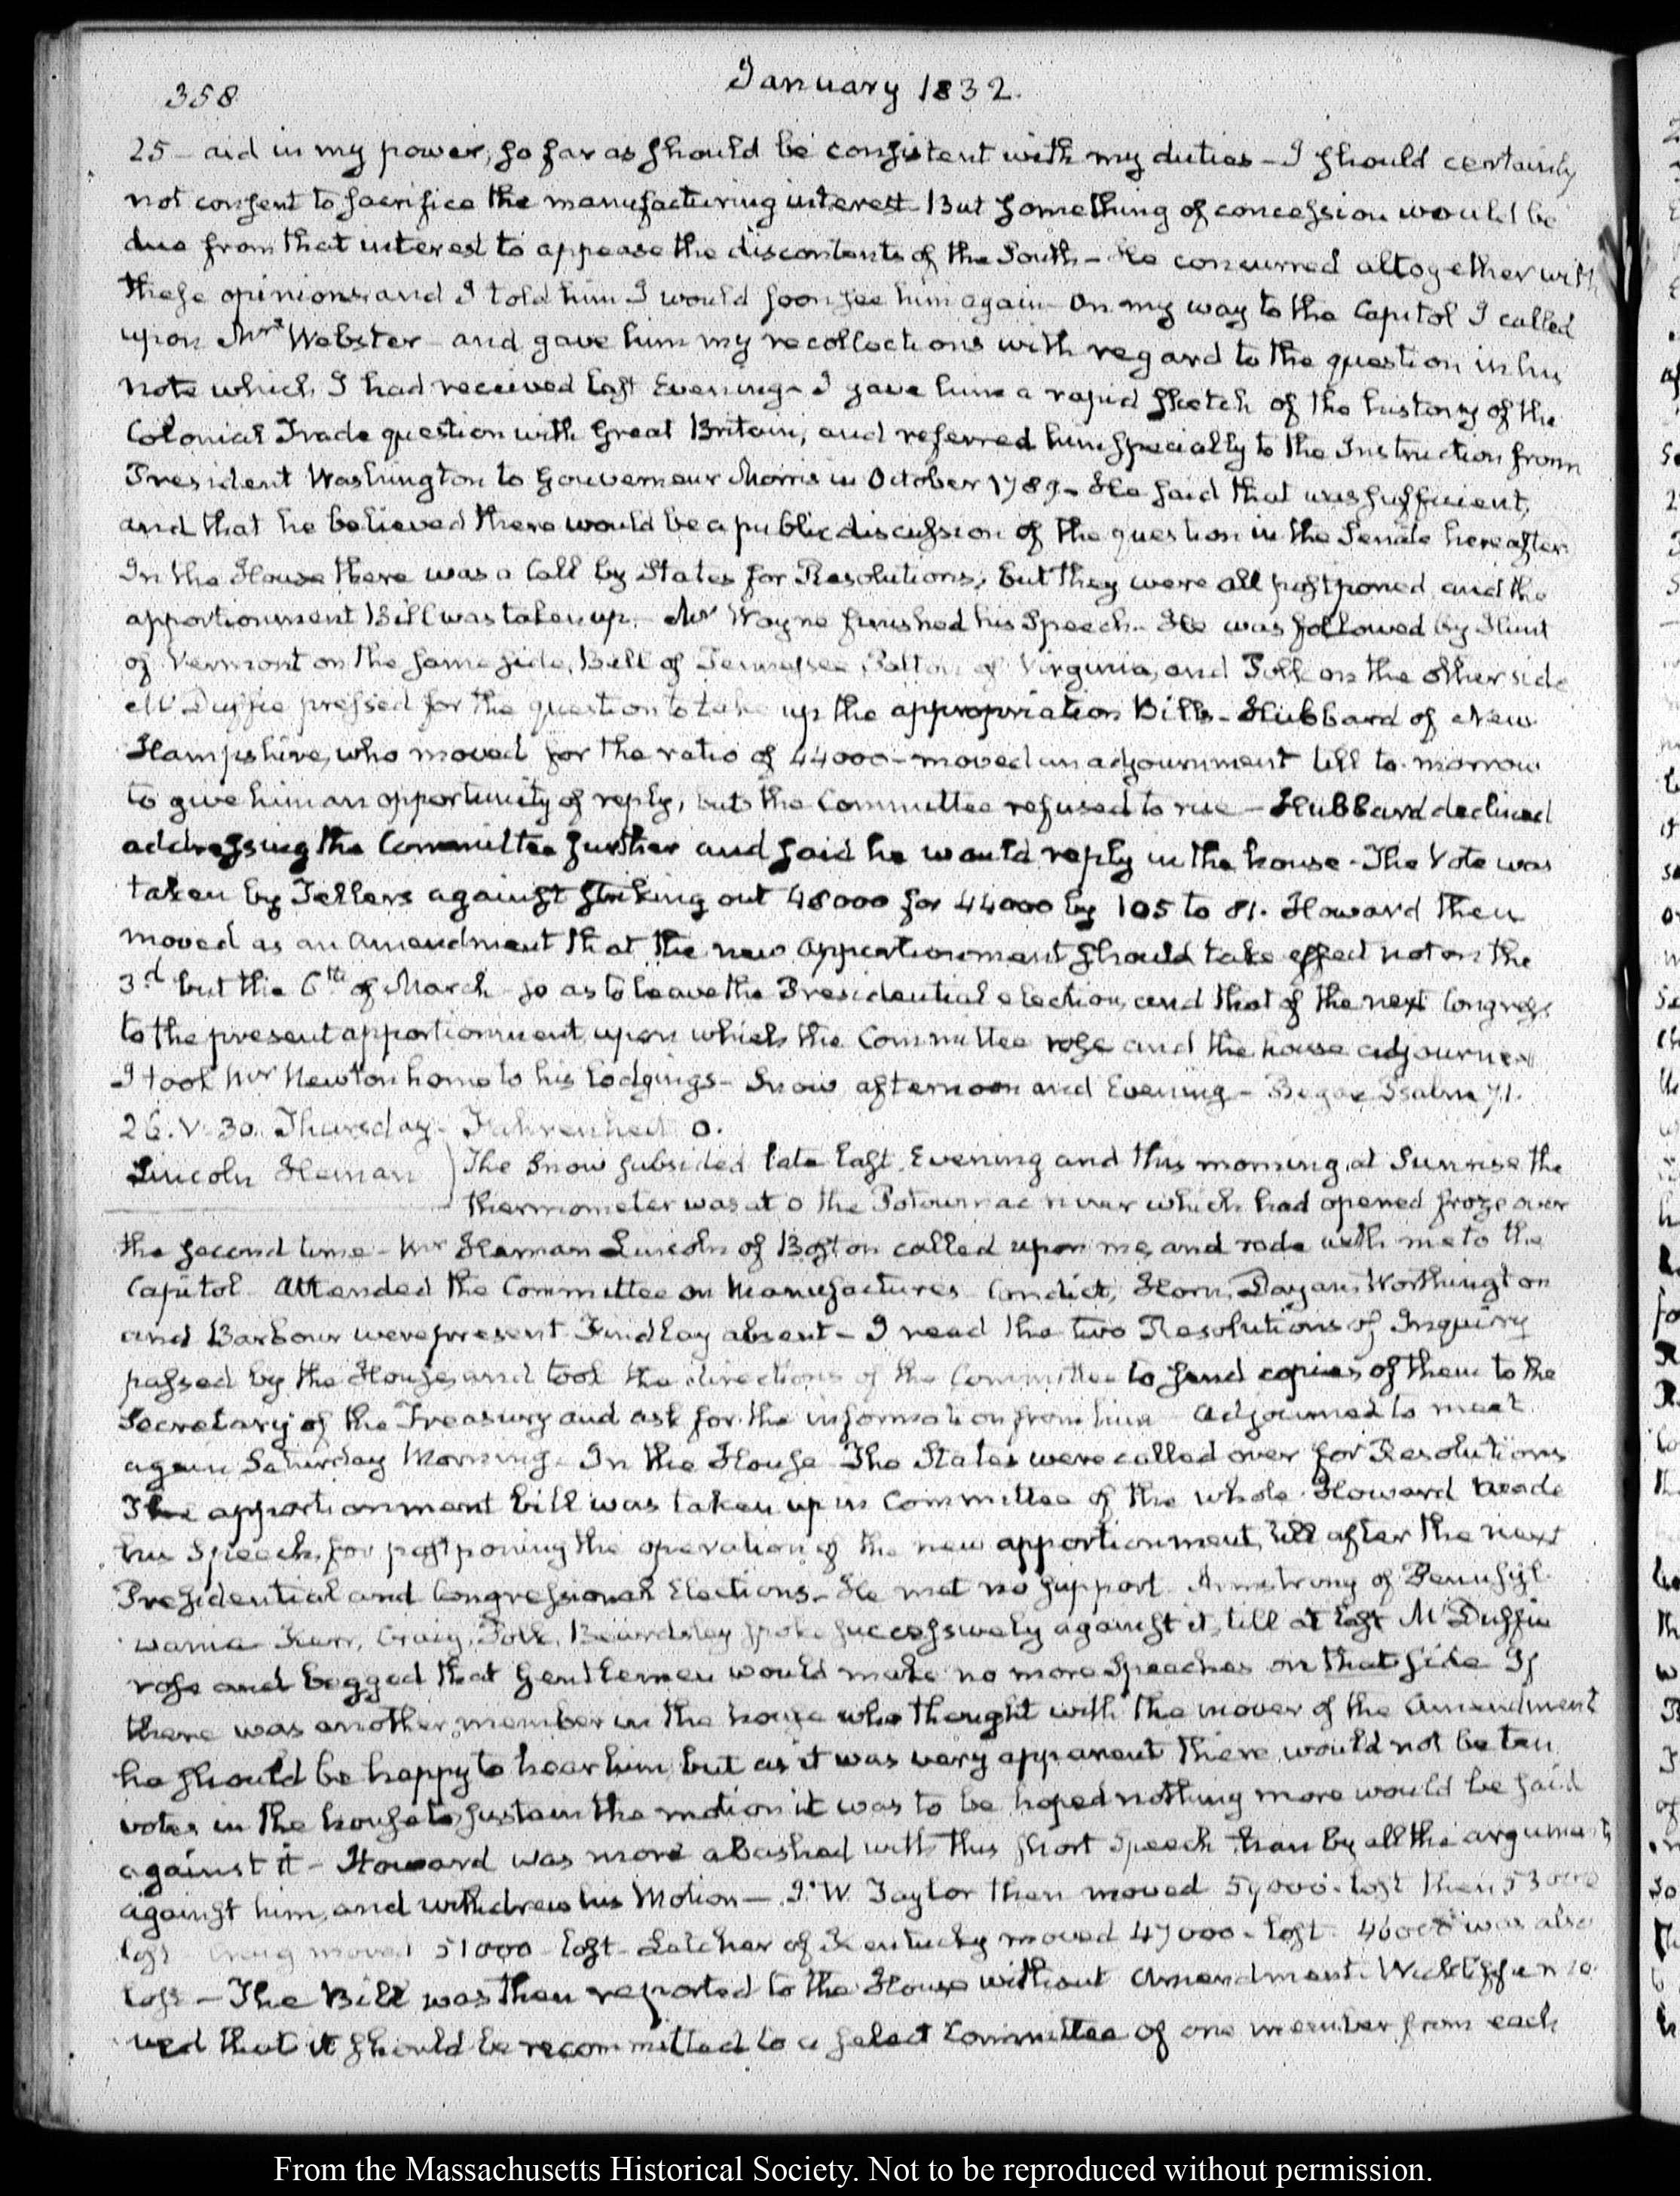 358
January 1832.
25 - aid in my power, so far as should be consistent with my duties - I should certainly
not consent to sacrifice the manufacturing interest - But something of concession would be
due from that interest to appease the discontents of the South - He concurred altogether with
these opinions and I told him I would soon see him again - On my way to the Capitol I called
upon Mr Webster - and gave him my recollections with regard to the question in his
note which I had received last Evening - I gave him a rapid sketch of the history of the
Colonial Trade question with Great Britain, and referred him specially to the Instruction from
President Washington to Gouverneur Morris in October 1789 - He said that was sufficient,
and that he believed there would be a public discussion of the question in the Senate hereafter
In the House there was a Call by States for Resolutions, but they were all postponed and the
apportionment Bill was taken up. Mr Wayne finished his Speech. He was followed by Hunt
of Vermont on the same side, Bell of Tennessee, Patton of Virginia, and Polk on the other side
McDuffie pressed for the question to take up the appropriation Bills - Hubbard of New
Hampshire, who moved for the ratio of 44000 - moved an adjournment till to-morrow
to give him an opportunity of reply, but the Committee refused to rise - Hubbard declined
addressing the Committee further and said he would reply in the house - The Vote was
taken by Tellers against striking out 48000 for 44000 by 105 to 81. Howard then
moved as an Amendment that the new Apportionment should take effect not on the
3d but the 6th of March so as to leave the Presidential election, and that of the next Congress
to the present apportionment, upon which the Committee rose and the house adjourned
I took Mr Newton home to his lodgings - Snow afternoon and Evening - Began Psalm 71.
26. V. 30. Thursday - Fahrenheit 0.
Lincoln Heman
The Snow subsided late last Evening and this morning at Sunrise the
thermometer was at 0 the Potowmac river which had opened froze over
the second time - Mr Heman Lincoln of Boston called upon me, and rode with me to the
Capitol - Attended the Committee on Manufactures - Condict, Horn, Dayan, Worthington
and Barbour were present - Findlay absent - I read the two Resolutions of Inquiry
passed by the House, and took the directions of the Committee to send copies of them to the
Secretary of the Treasury and ask for the information from him - Adjourned to meet
again Saturday Morning. In the House - The States were called over for Resolutions
The apportionment bill was taken up in Committee of the whole. Howard made
his Speech, for postponing the operation of the new apportionment, till after the next
Presidential and Congressional Elections - He met no support. Armstrong of Pennsyl-
vania Kerr, Craig, Polk, Beardsley spoke successively against it, till at last McDuffie
rose and begged that Gentlemen would make no more Speeches on that side If
there was another member in the house who thought with the mover of the Amendment
he should be happy to hear him, but as it was very apparent there would not be ten
votes in the house to sustain the motion it was to be hoped nothing more would be said
against it - Howard was more abashed with this short Speech than by all the arguments
against him, and withdrew his Motion - J. W. Taylor then moved 59000. lost then 53000
lost - Craig moved 51000 - lost - Letcher of Kentucky moved 47000 - lost - 46000 was also
lost - The Bill was then reported to the House without Amendment. Wickliffe mo-
ved that it should be recommitted to a select Committee of one member from each
From the Massachusetts Historical Society. Not to be reproduced without permission.